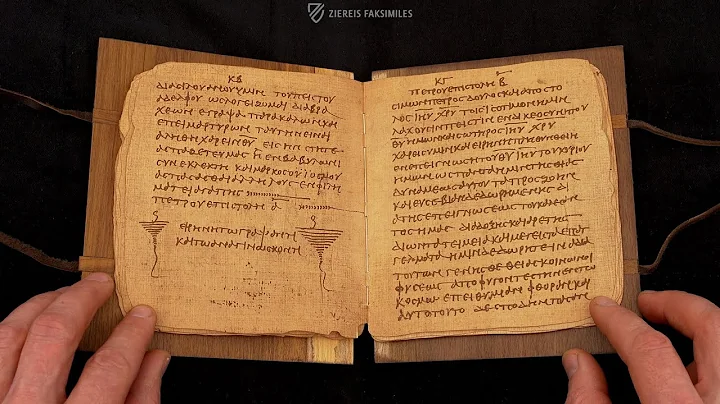 ZIEREIS FAKSIMILES
ΚΒ
ΔΙΑ ΣΙΛΟΥΑΝΟΥ ΥΜΙΝ ΤΟΥ ΠΙΣΤΟΥ
ΑΔΕΛΦΟΥ ΩΣ ΛΟΓΕΙΖΟΜΑΙ ΔΙΑ ΒΡΑ
ΧΕΩΝ ΕΓΡΑΨΑ ΠΑΡΑΚΑΛΩΝ ΚΑΙ
ΕΠΕΙΜΑΡΤΥΡΩΝ ΤΑΥΤΗΝ ΕΙΝΑΙ
ΑΛΗΘΗ ΧΑΡΕΙΝ ΘΥ ΕΙΣ ΗΝ ΣΤΗΤΕ
ΑΣΠΑΖΕΤΕ ΥΜΑΣ Η ΕΝ ΒΑΒΥΛΩΝΙ
ΣΥΝΕΚΛΕΚΤΗ ΚΑΙ ΜΑΡΚΟΣ Ο ΥΙΟΣ ΜΟΥ
ΑΣΠΑΣΑΣΘΕ ΑΛΛΗΛΟΥΣ ΕΝ ΦΙΛΗ
ΜΑΤΕΙ ΑΓΑΠΗΣ
ΠΕΤΡΟΥ ΕΠΙΣΤΟΛΗ Α
ΕΙΡΗΝΗ ΤΩ ΓΡΑΨΑΝΤΙ
ΚΑΙ ΤΩ ΑΝΑΓΙΝΩΣΚΟΝΤΙ
ΚΓ
ΠΕΤΡΟΥ ΕΠΙΣΤΟΛΗ Β
ΣΙΜΩΝ ΠΕΤΡΟΣ ΔΟΥΛΟΣ ΚΑΙ ΑΠΟΣΤΟ
ΛΟΣ ΙΗΥ ΧΡΥ ΤΟΙΣ ΙΣΟΤΙΜΟΝ ΗΜΙΝ
ΛΑΧΟΥΣΙΝ ΠΙΣΤΙΝ ΕΝ ΔΙΚΕΟΣΥΝΗ ΤΟΥ
ΘΥ ΗΜΩΝ ΚΑΙ ΣΩΤΗΡΟΣ ΙΗΥ ΧΡΥ
ΧΑΡΕΙΣ ΥΜΙΝ ΚΑΙ ΕΙΡΗΝΗ ΠΛΗΘΥΝΘΕΙΗ
ΕΝ ΕΠΕΙΓΝΩΣΕΙ ΤΟΥ ΘΥ ΙΗΥ ΤΟΥ ΚΥΡΙΟΥ
ΗΜΩΝ ΩΣ ΠΑΝΤΑ ΗΜΙΝ ΤΗΣ ΘΕΙΑΣ
ΔΥΝΑΜΕΩΣ ΑΥΤΟΥ ΤΑ ΠΡΟΣ ΖΩΗΝ
ΚΑΙ ΕΥΣΕΒΙΑΝ ΔΕΔΩΡΗΜΕΝΗΣ ΔΙ
Α ΤΗΣ ΕΠΙΓΝΩΣΕΩΣ ΤΟΥ ΚΑΛΕΣΑΝ
ΤΟΣ ΗΜΑΣ ΔΙΑ ΔΟΞΗΣ ΚΑΙ ΑΡΕΤΗΣ
ΔΙ ΩΝ ΤΑ ΤΕΙΜΕΙΑ ΚΑΙ ΜΕΓΙΣΤΑ ΕΠΑΓ
ΓΕΛΜΑΤΑ ΗΜΙΝ ΔΕΔΩΡΗΤΕ ΙΝΑ ΔΙΑ
ΤΟΥΤΩΝ ΓΕΝΗΣΘΕ ΘΕΙΑΣ ΚΟΙΝΩΝΟΙ
ΦΥΣΕΩΣ ΑΠΟΦΥΓΟΝΤΕΣ ΤΗΝ ΕΝ ΤΩ
ΚΟΣΜΩ ΕΠΕΙΘΥΜΙΑΝ ΦΘΟΡΑΣ ΚΑΙ
ΑΥΤΟ ΤΟΥΤΟ ΔΕ ΣΠΟΥΔΗΝ ΠΑΣΑΝ